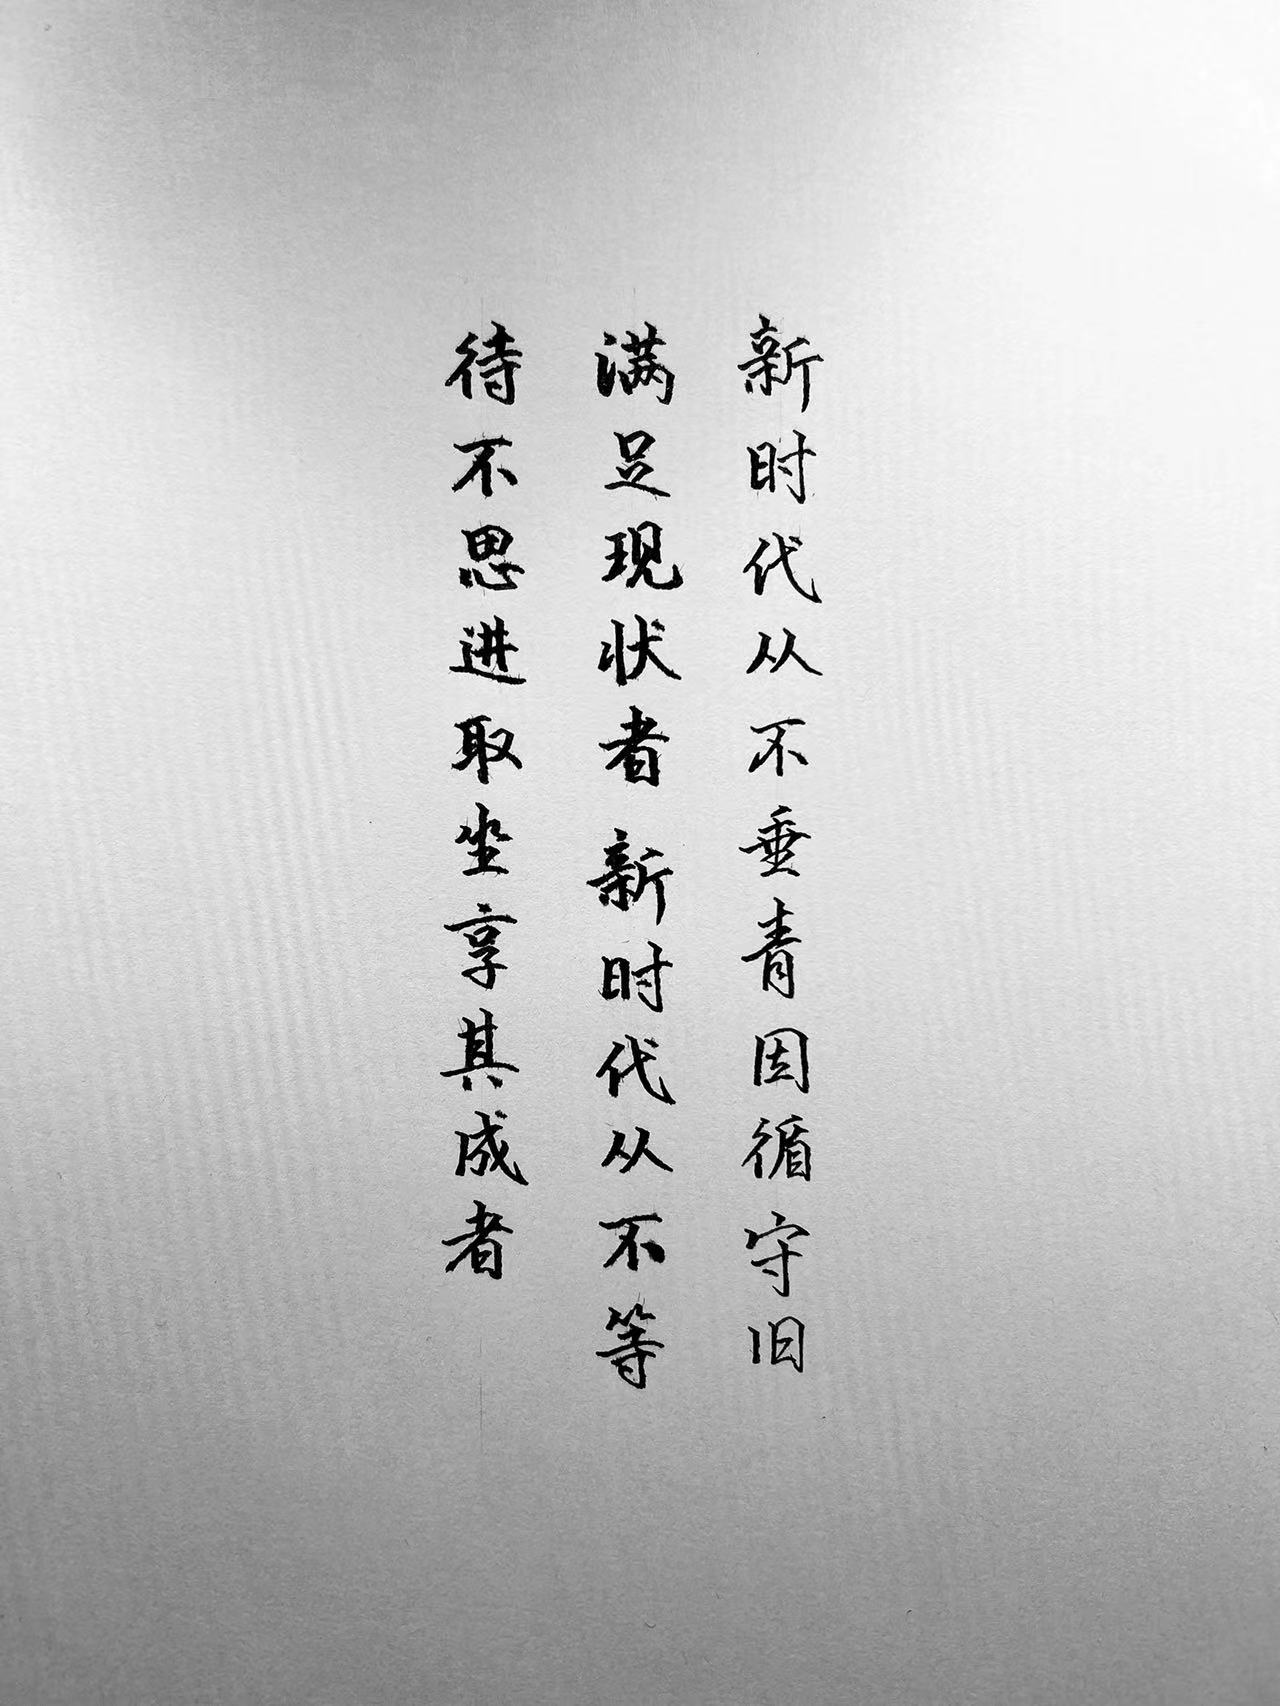 新时代从不垂青因循守旧
满足现状者新时代从不等
待不思进取坐享其成者